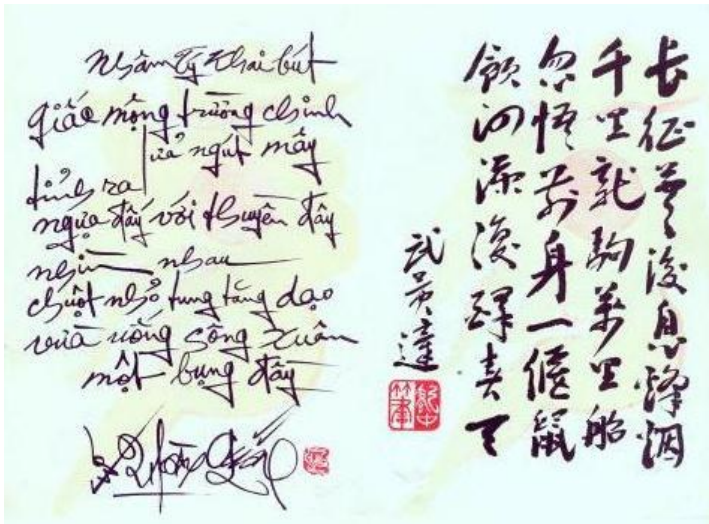 Nhâm Tý khai bút
giấc mộng trường chinh
lửa ngút mây
tỉnh ra
ngựa đấy với thuyền đây
nhìn nhau
chuột nhỏ tung tăng dạo
vừa uống sông xuân
một bụng đầy
长征夢後息烽烟
千里龍駒萬里船
忽悟前身一偃鼠
河 春天
武 達